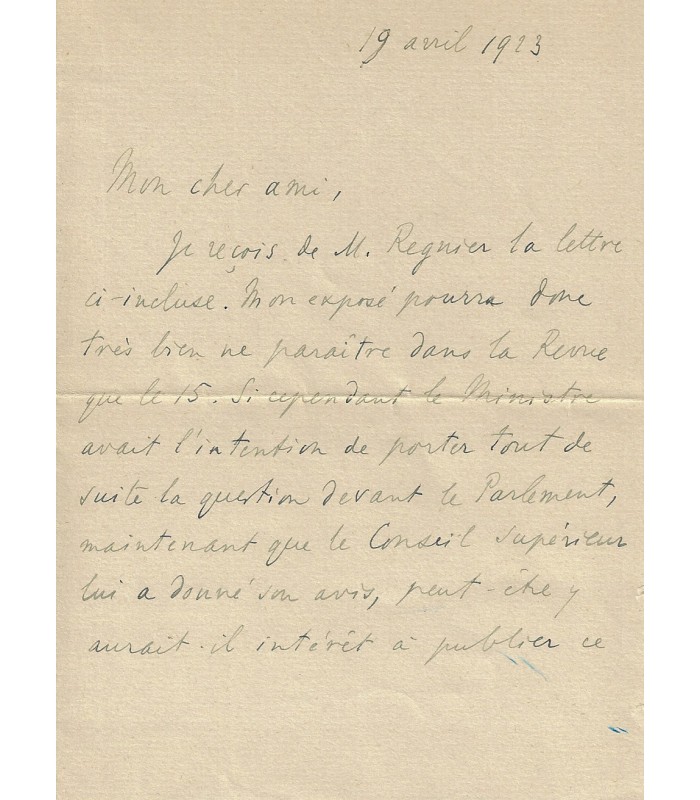 19 avril 1923
Mon cher ami,
Je reçois de M. Regnier la lettre
ci-incluse. Mon exposé pourra donc
très bien ne paraître dans la Revue
que le 15. Si cependant le Ministre
avait l'intention de porter tout de
suite la question devant le Parlement,
maintenant que le Conseil supérieur
lui a donné son avis, peut-être y
aurait-il intérêt à publier ce